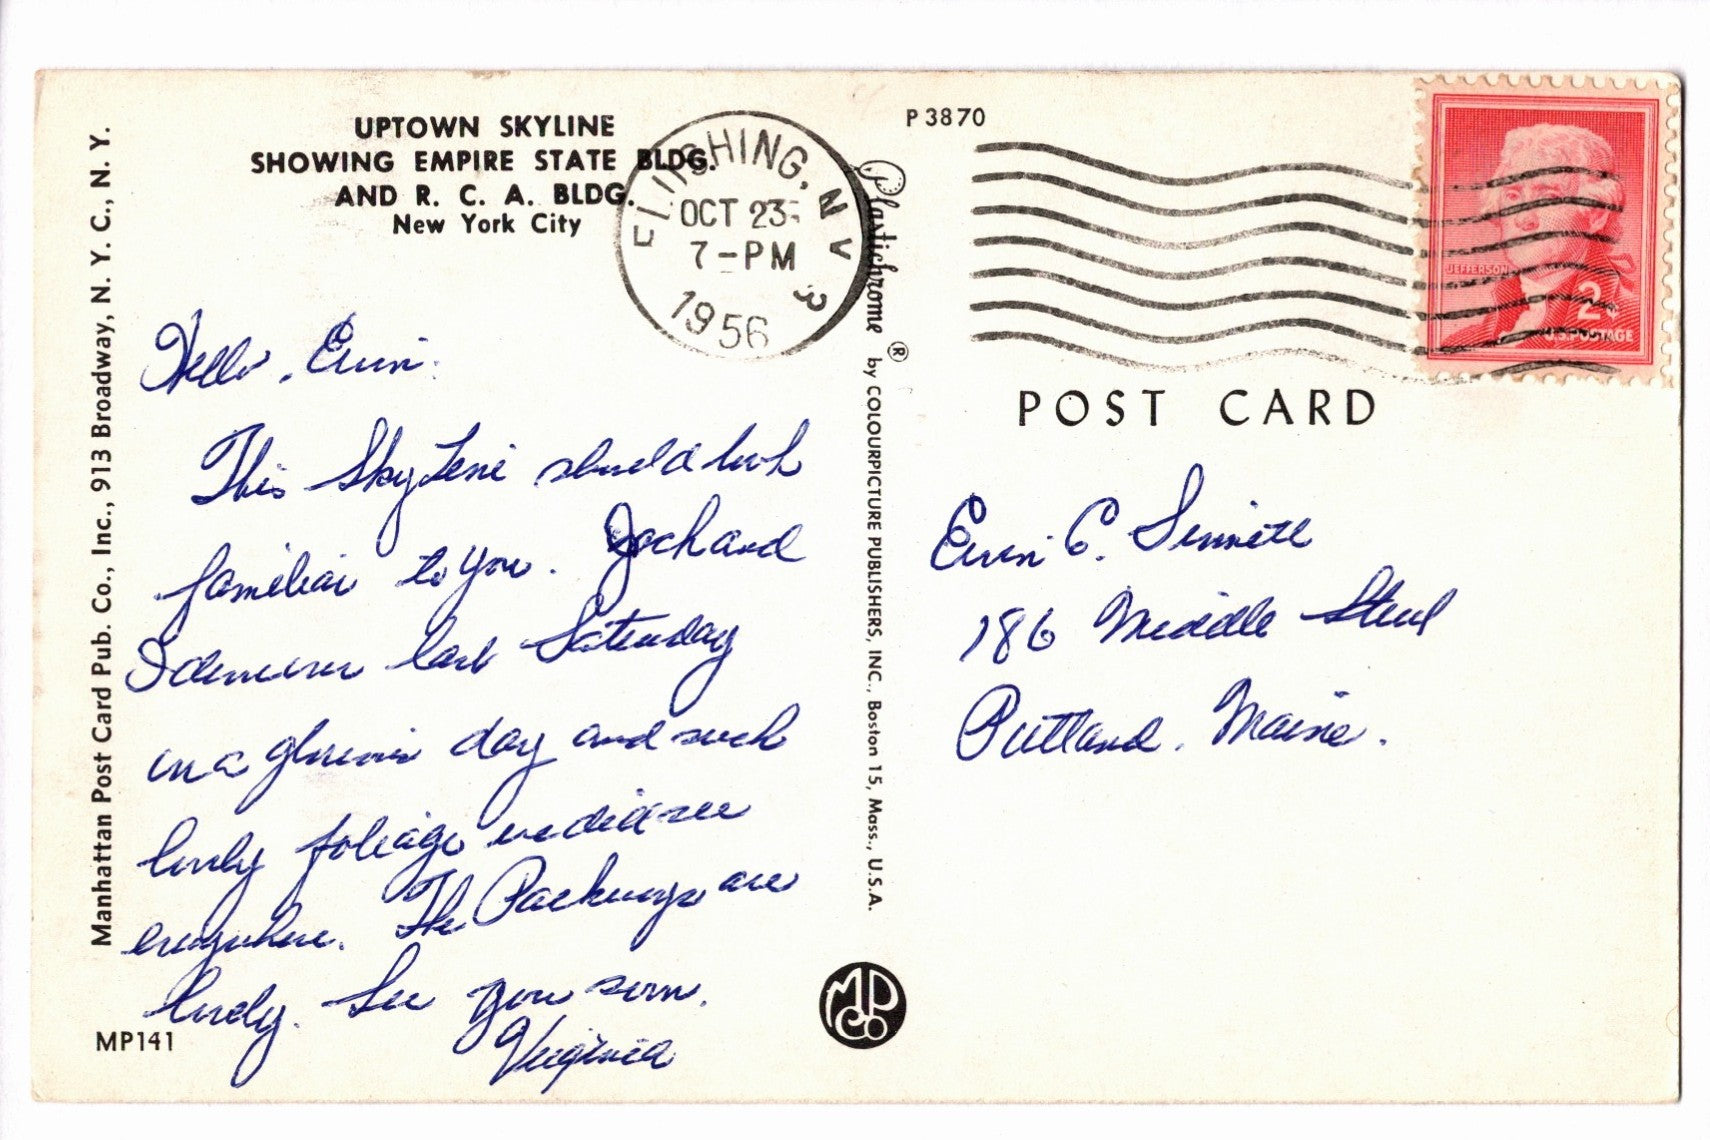 UPTOWN SKYLINE
SHOWING EMPIRE STATE BLDG.
AND R. C. A. BLDG.
New York City
Manhattan Post Card Pub. Co., Inc., 913 Broadway, N. Y. C., N. Y.
FLUSHING, N Y
OCT 23
7-PM
1956
3
P 3870
Plastichrome ® by COLOURPICTURE PUBLISHERS, INC., Boston 15, Mass., U.S.A.
JEFFERSON
2¢
U.S. POSTAGE
POST CARD
Hello,
This Skyline should look
familiar to you. Jack and
I last Saturday
on a glorious day and such
lovely foliage we did see
everywhere. The are
lovely. See you soon.
Virginia
C.
186 Middle Street
Portland, Maine.
MPCo
MP141